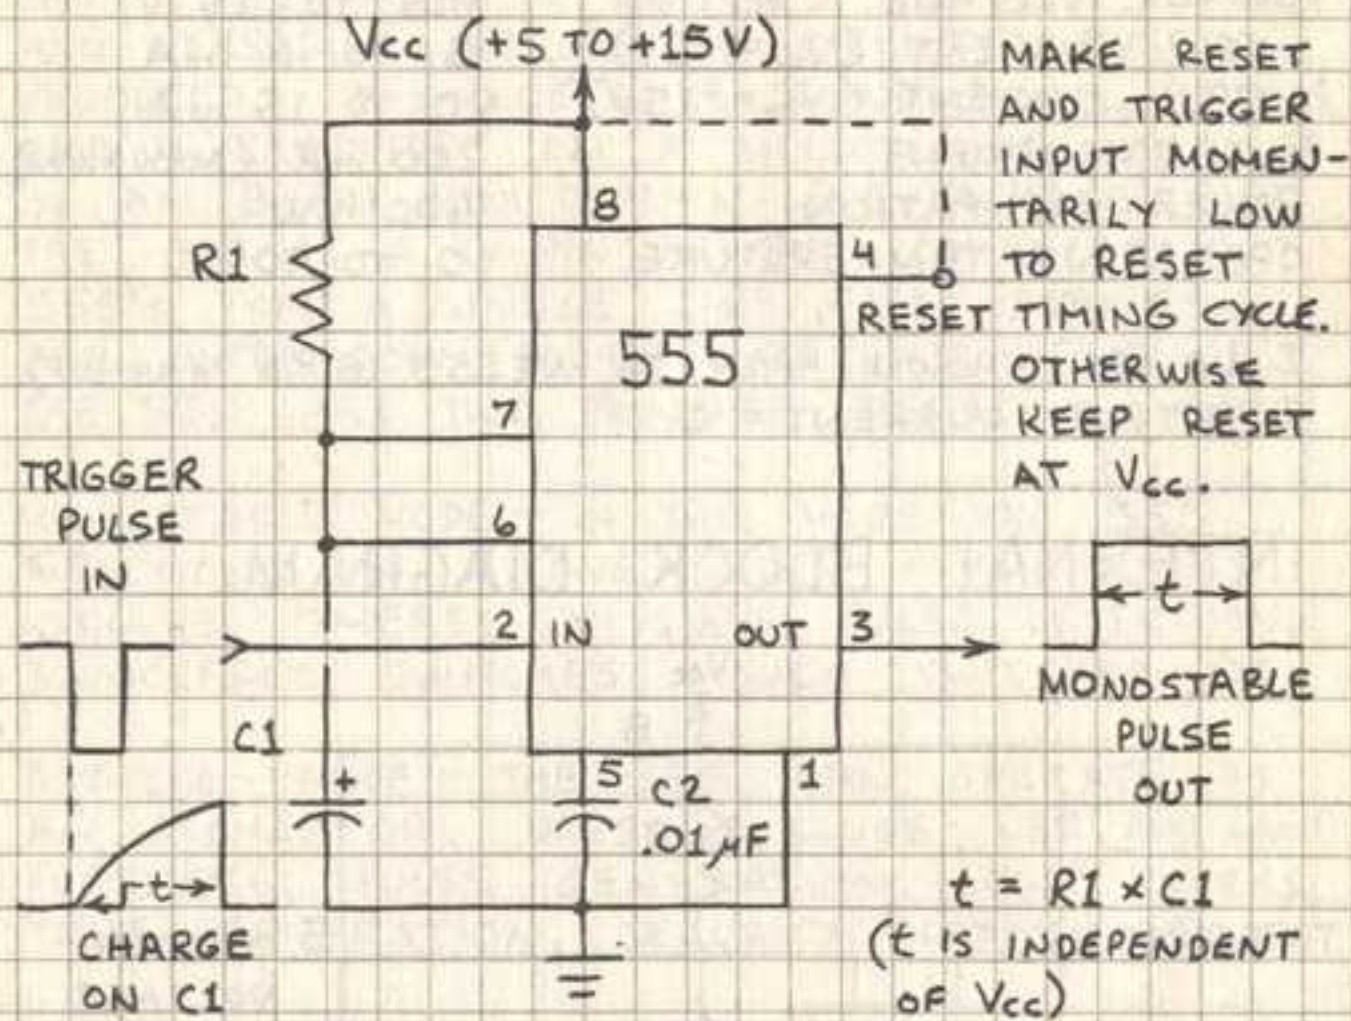 Vcc (+5 TO +15V)
MAKE RESET
AND TRIGGER
INPUT MOMEN-
TARILY LOW
TO RESET
TIMING CYCLE.
OTHERWISE
KEEP RESET
AT Vcc.
8
R1
4
RESET
555
7
TRIGGER
PULSE
IN
6
2 IN
OUT 3
t
MONOSTABLE
PULSE
OUT
C1
+
5
C2
.01µF
1
t
CHARGE
ON C1
t = R1 × C1
(t IS INDEPENDENT
OF Vcc)